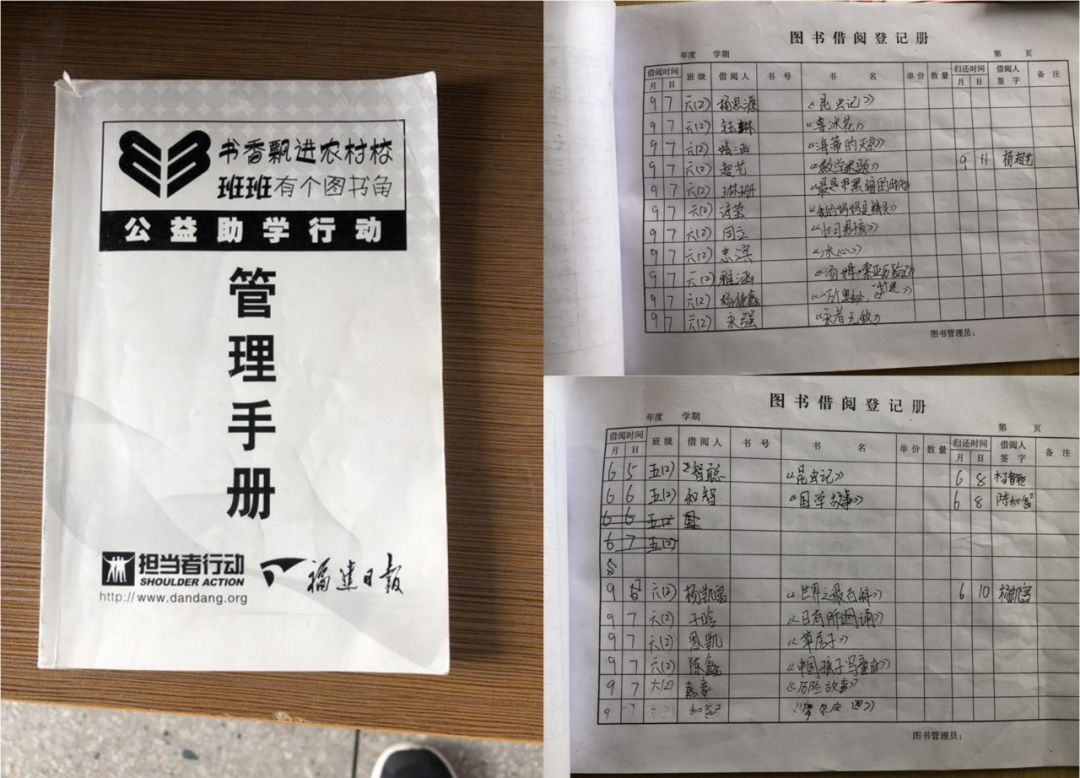 书香飘进农村校
班班有个图书角
公益助学行动
管理手册
担当者行动
SHOULDER ACTION
http://www.dandang.org
福建日报
图书借阅登记册
年度 学期 第 页
借阅时间 班级 借阅人 书号 书名 单价 数量 归还时间 借阅人签字 备注
月 日 月 日
9 7 六(2) 杨思源 《昆虫记》
9 7 六(2) 《李冰花》
9 7 六(2) 《海蒂的天空》
9 7 六(2) 超艺 《数学 9 11 杨超艺
9 7 六(2) 琳珊
9 7 六(2) 诗莹 《我的妈妈是精灵》
9 7 六(2) 同立
9 7 六(2) 志滨 《冰心》
9 7 六(2) 雅涵 《汤姆·索亚历险记》
9 7 六(2)
9 7 六(2) 永强 《永者无敌》
图书管理员:
图书借阅登记册
年度 学期 第 页
借阅时间 班级 借阅人 书号 书名 单价 数量 归还时间 借阅人签字 备注
月 日 月 日
6 5 五(2) 智聪 《昆虫记》 6 8
6 6 五(2) 和智 《国学故事》 6 8 陈和智
6 6 五(2)
6 7 五(2)
9 六(2) 杨凯富 《世界之最 6 10 杨凯富
9 7 六(2) 子晗 《日有所诵》
9 7 六(2) 恩凯 《草房子》
9 7 六(2) 陈鑫 《中国孩子
9 7 六(2) 《历险故事》
9
图书管理员: